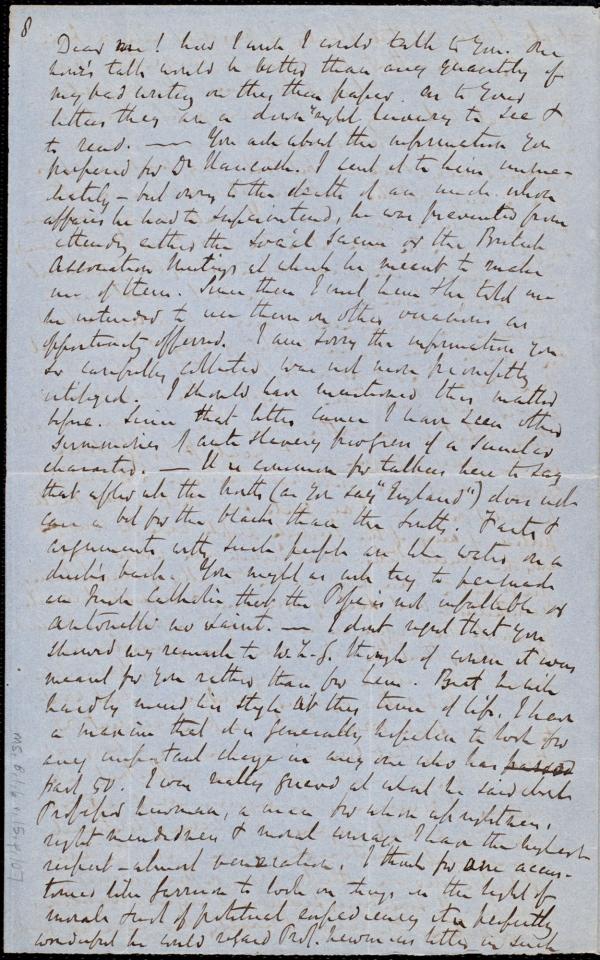 8
Dear me! how I wish I could talk to you. One
hour's talk would be better than any quantity of
my bad writing on this thin paper. As to your
letters they are a downright luxury to see &
to read. — You ask about the information you
prepared for Dr Hancock. I sent it to him imme-
diately – but owing to the death of an uncle whose
affairs he had to superintend, he was prevented from
attending either the Social Science or the British
Association Meetings at which he meant to make
use of them. Since then I met him & he told me
he intended to use them on other occasions as
opportunity offered. I am sorry the information you
so carefully collected was not more promptly
utilized. I should have mentioned this matter
before. Since that letter came I have seen other
summaries of anti slavery progress of a similar
character. — It is common for talkers here to say
that after all the North (as you say "England") does not
care a bit for the blacks than the South. Facts &
arguments with such people are like water on a
duck's back. You might as well try to persuade
an Irish Catholic that the Pope is not infallible or
Antonelli no saint. — I don't regret that you
showed my remarks to W.L.G. though of course it was
meant for you rather than for him. But he will
hardly mend his style at this time of life. I have
a maxim that it is generally hopeless to look for
any important change in any one who has passed
past 50. I was really grieved at what he said about
Professor Newman, a man for whose uprightness,
right mindedness & moral courage I have the highest
respect – almost veneration. I think for one accus-
tomed like Garrison to look on things in the light of
morals & not of political expediency it is perfectly
wonderful he could regard Prof. Newman's letter in such
Ms. B.1.6 v.15, p.107